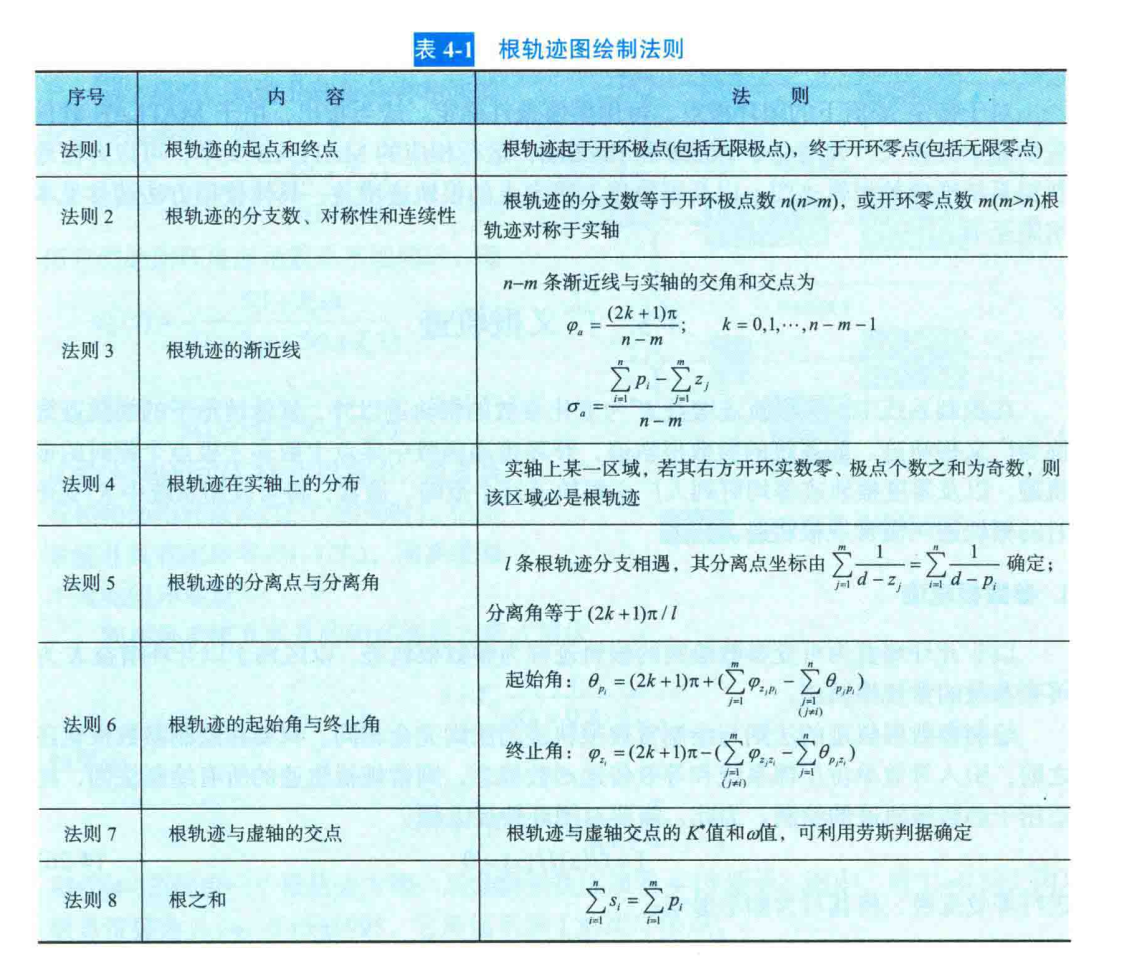 表 4-1 根轨迹图绘制法则
序号 内 容 法 则
法则 1 根轨迹的起点和终点 根轨迹起于开环极点(包括无限极点)，终于开环零点(包括无限零点)
法则 2 根轨迹的分支数，对称性和连续性 根轨迹的分支数等于开环极点数 n(n>m)，或开环零点数 m(m>n)根
轨迹对称于实轴
法则 3 根轨迹的渐近线 n–m 条渐近线与实轴的交角和交点为
φ_a = (2k+1)π / (n−m); k = 0,1,⋯,n−m−1
σ_a = (∑_{i=1}^{n} p_i − ∑_{j=1}^{m} z_j) / (n−m)
法则 4 根轨迹在实轴上的分布 实轴上某一区域，若其右方开环实数零、极点个数之和为奇数，则
该区域必是根轨迹
法则 5 根轨迹的分离点与分离角 l 条根轨迹分支相遇，其分离点坐标由 ∑_{j=1}^{m} 1/(d−z_j) = ∑_{i=1}^{n} 1/(d−p_i) 确定；
分离角等于 (2k+1)π / l
法则 6 根轨迹的起始角与终止角 起始角：θ_{p_i} = (2k+1)π + (∑_{j=1}^{m} φ_{z_j p_i} − ∑_{j=1 (j≠i)}^{n} θ_{p_j p_i})
终止角：φ_{z_i} = (2k+1)π − (∑_{j=1 (j≠i)}^{m} φ_{z_j z_i} − ∑_{j=1}^{n} θ_{p_j z_i})
法则 7 根轨迹与虚轴的交点 根轨迹与虚轴交点的 K*值和ω值，可利用劳斯判据确定
法则 8 根之和 ∑_{i=1}^{n} s_i = ∑_{i=1}^{m} p_i